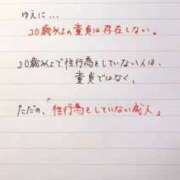 ゆえに...
20歳以上の童貞は存在しない。
20歳以上で性行為をしていない人は、
童貞ではなく、
ただの、「性行為をしていない成人」